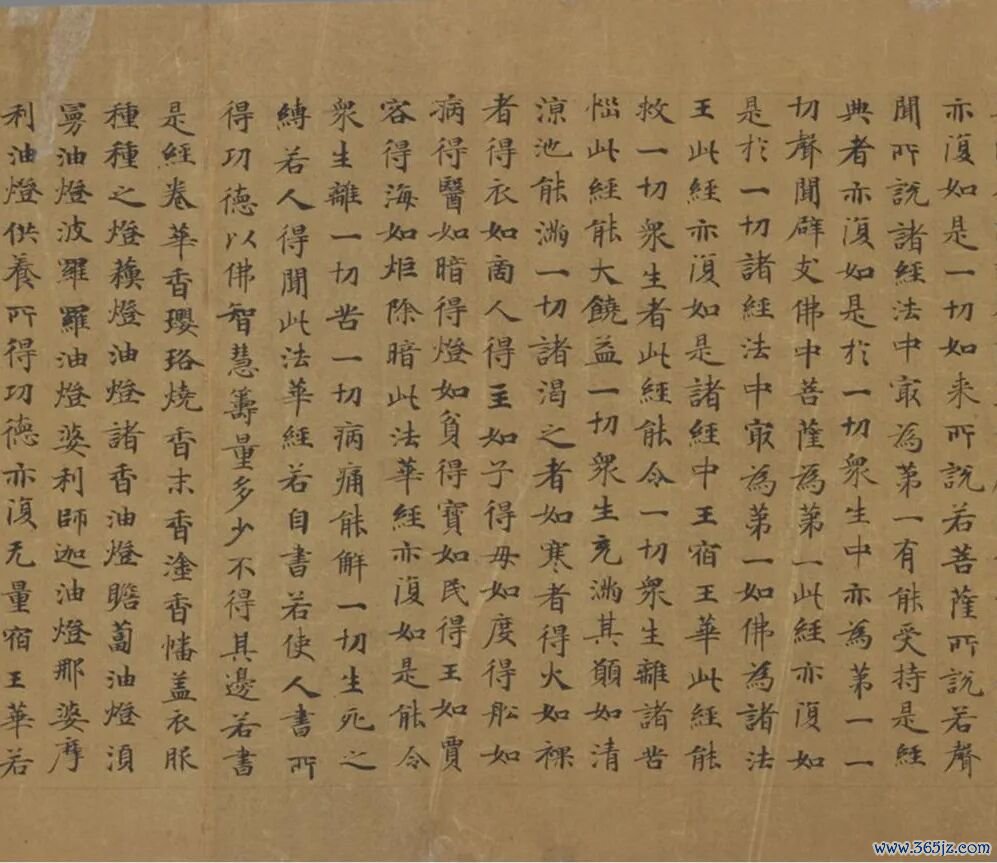 亦復如是一切如来所說若菩薩所說若聲
聞所說諸經法中㝡為第一有能受持是經
典者亦復如是於一切衆生中亦為第一一
切聲聞辟支佛中菩薩為第一此經亦復如
是於一切諸經法中㝡為第一如佛為諸法
王此經亦復如是諸經中王宿王華此經能
救一切衆生者此經能令一切衆生離諸苦
惱此經能大饒益一切衆生充滿其願如清
涼池能滿一切諸渴之者如寒者得火如裸
者得衣如商人得主如子得母如度得舩如
病得醫如暗得燈如貧得寶如民得王如賈
客得海如炬除暗此法華經亦復如是能令
衆生離一切苦一切病痛能解一切生死之
縛若人得聞此法華經若自書若使人書所
得功德以佛智慧籌量多少不得其邊若書
是經卷華香瓔珞燒香末香塗香幡盖衣服
種種之燈蘓燈油燈諸香油燈瞻蔔油燈湏
曼油燈波羅羅油燈婆利師迦油燈那婆摩
利油燈供養所得功德亦復无量宿王華若
www.365jz.com